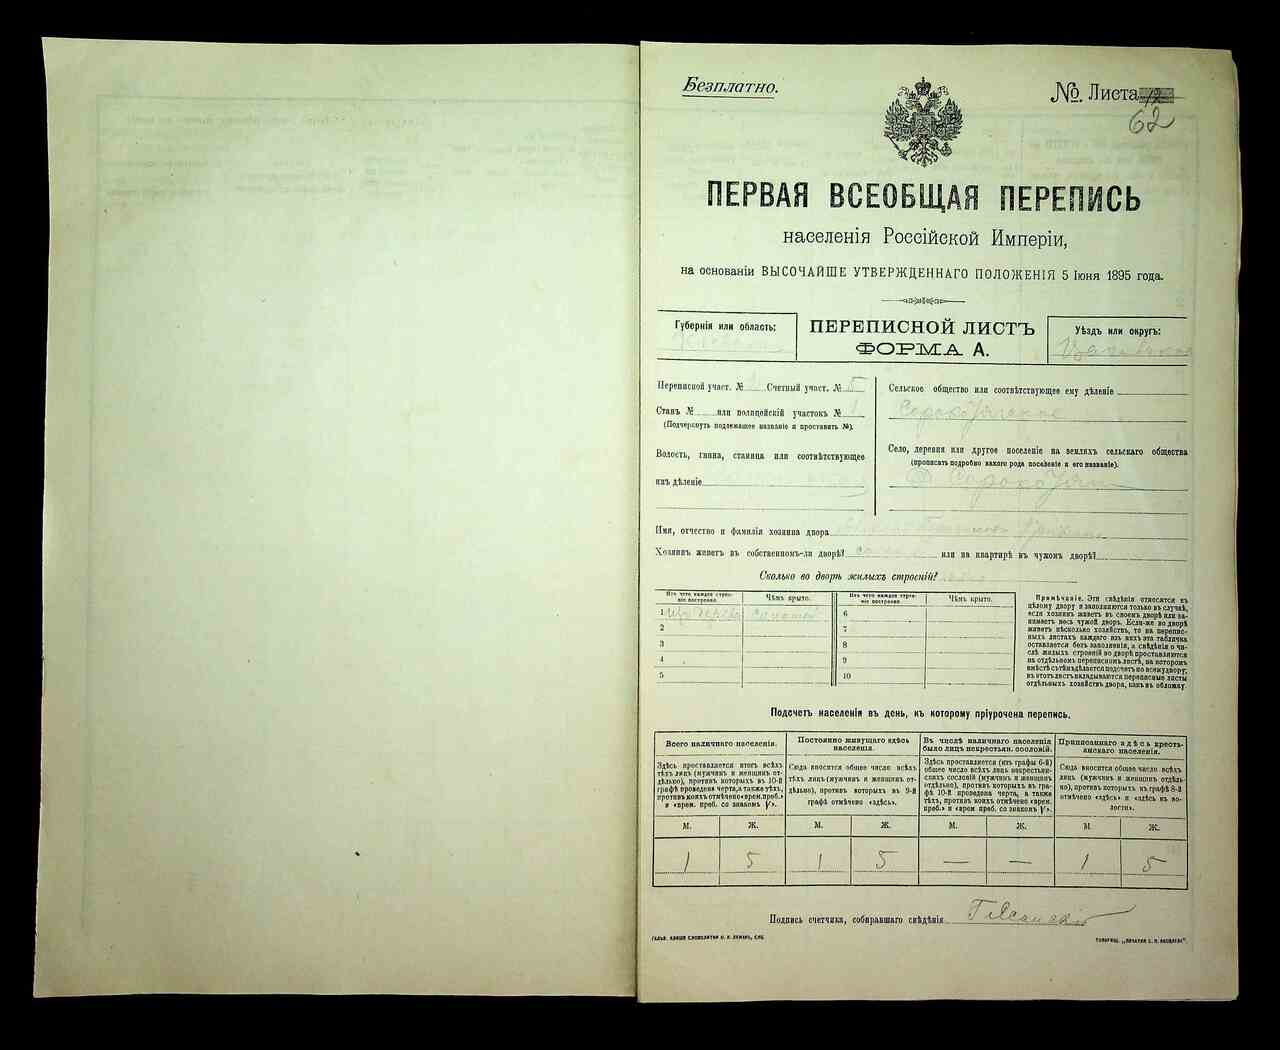 Безплатно.
№ Листа
62
ПЕРВАЯ ВСЕОБЩАЯ ПЕРЕПИСЬ
населенія Россійской Имперіи,
на основаніи ВЫСОЧАЙШЕ УТВЕРЖДЕННАГО ПОЛОЖЕНІЯ 5 Іюня 1895 года.
Губернія или область:
ПЕРЕПИСНОЙ ЛИСТЪ
ФОРМА А.
Уѣздъ или округъ:
Переписной участ. № Счетный участ. № 5
Станъ № или полицейскій участокъ № 1
(Подчеркнуть подлежащее названіе и проставить №).
Волость, гмина, станица или соотвѣтствующее
имъ дѣленіе
Сельское общество или соотвѣтствующее ему дѣленіе
Село, деревня или другое поселеніе на земляхъ сельскаго общества
(прописать подробно какого рода поселеніе и его названіе).
Имя, отчество и фамилія хозяина двора
Хозяинъ живетъ въ собственномъ-ли дворѣ? или на квартирѣ въ чужомъ дворѣ?
Сколько во дворѣ жилыхъ строеній?
Изъ чего каждое строеніе построено.
Чѣмъ крыто.
Изъ чего каждое строеніе построено.
Чѣмъ крыто.
1 изъ дерева соломой 6
2 7
3 8
4 9
5 10
Примѣчаніе. Эти свѣдѣнія относятся къ
цѣлому двору и заполняются только въ случаѣ,
если хозяинъ живетъ въ своемъ дворѣ или занимаетъ
весь чужой дворъ. Если-же во дворѣ
живетъ нѣсколько хозяйствъ, то на переписныхъ
листахъ каждаго изъ нихъ эта табличка
оставляется безъ заполненія, а свѣдѣнія о числѣ
жилыхъ строеній во дворѣ проставляются
на отдѣльномъ переписномъ листѣ, на которомъ
вмѣстѣ съ тѣмъ дѣлается подсчетъ по всему двору;
въ этотъ листъ вкладываются переписные листы
отдѣльныхъ хозяйствъ двора, какъ въ обложку.
Подсчетъ населенія въ день, къ которому пріурочена перепись.
Всего наличнаго населенія.
Здѣсь проставляется итогъ всѣхъ
тѣхъ лицъ (мужчинъ и женщинъ отдѣльно),
противъ которыхъ въ 10-й
графѣ проведена черта, а также тѣхъ,
противъ коихъ отмѣчено «врем. преб.»
и «врем. преб. со знакомъ V».
Постоянно живущаго здѣсь
населенія.
Сюда вносится общее число всѣхъ
тѣхъ лицъ (мужчинъ и женщинъ отдѣльно),
противъ которыхъ въ 9-й
графѣ отмѣчено «здѣсь».
Въ числѣ наличнаго населенія
было лицъ некрестьян. сословій.
Здѣсь проставляется (изъ графы 6-й)
общее число всѣхъ лицъ некрестьянскихъ
сословій (мужчинъ и женщинъ
отдѣльно), противъ которыхъ въ графѣ
10-й проведена черта, а также
тѣхъ, противъ коихъ отмѣчено «врем.
преб.» и «врем преб. со знаком V».
Приписаннаго здѣсь крестьянскаго
населенія.
Сюда вносится общее число всѣхъ
лицъ (мужчинъ и женщинъ отдѣльно),
противъ которыхъ въ графѣ 8-й
отмѣчено «здѣсь» и «здѣсь въ волости».
М. Ж. М. Ж. М. Ж. М. Ж.
1 5 1 5 — — 1 5
Подпись счетчика, собиравшаго свѣдѣнія